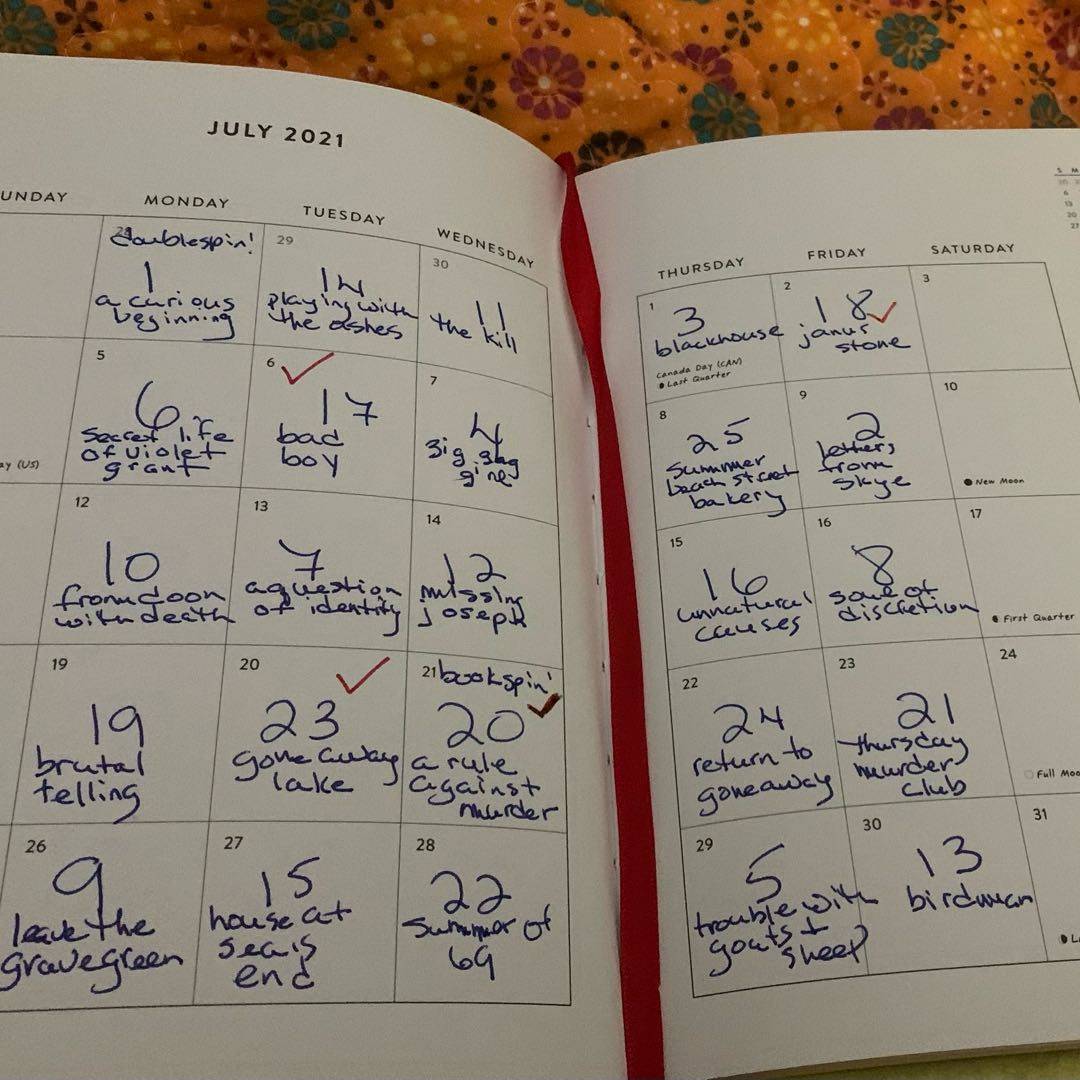 JULY 2021
UNDAY
MONDAY
TUESDAY
WEDNESDAY
THURSDAY
FRIDAY
SATURDAY
S M
6
13
20
27
doublespin!
1
a curious
beginning
29
14
playing with
the ashes
30
11
the kill
1
3
blackhouse
Canada Day (CAN)
Last Quarter
2
18
janus
stone
3
ay (US)
5
6
secret life
of violet
grant
6
17
bad
boy
7
4
zig zag
girl
8
25
summer
beach street
bakery
9
2
letters
from
skye
10
New Moon
12
10
from doon
with death
13
7
a question
of identity
14
12
missing
joseph
15
16
unnatural
causes
16
8
soul of
discretion
17
First Quarter
19
19
brutal
telling
20
23
gone away
lake
21
bookspin!
20
a rule
against
murder
22
24
return to
goneaway
23
21
thursday
murder
club
24
Full Moo
26
9
leave the
grave green
27
15
house at
sea's
end
28
22
summer of
69
29
5
trouble with
goats +
sheep
30
13
birdman
31
L